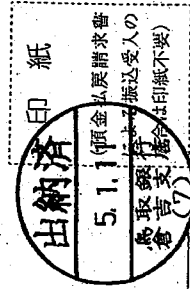 印紙
(預金払戻請求書
による振込受入の
場合は印紙不要)
出納済
5.1.11
鳥取銀行
倉吉支店
(7)